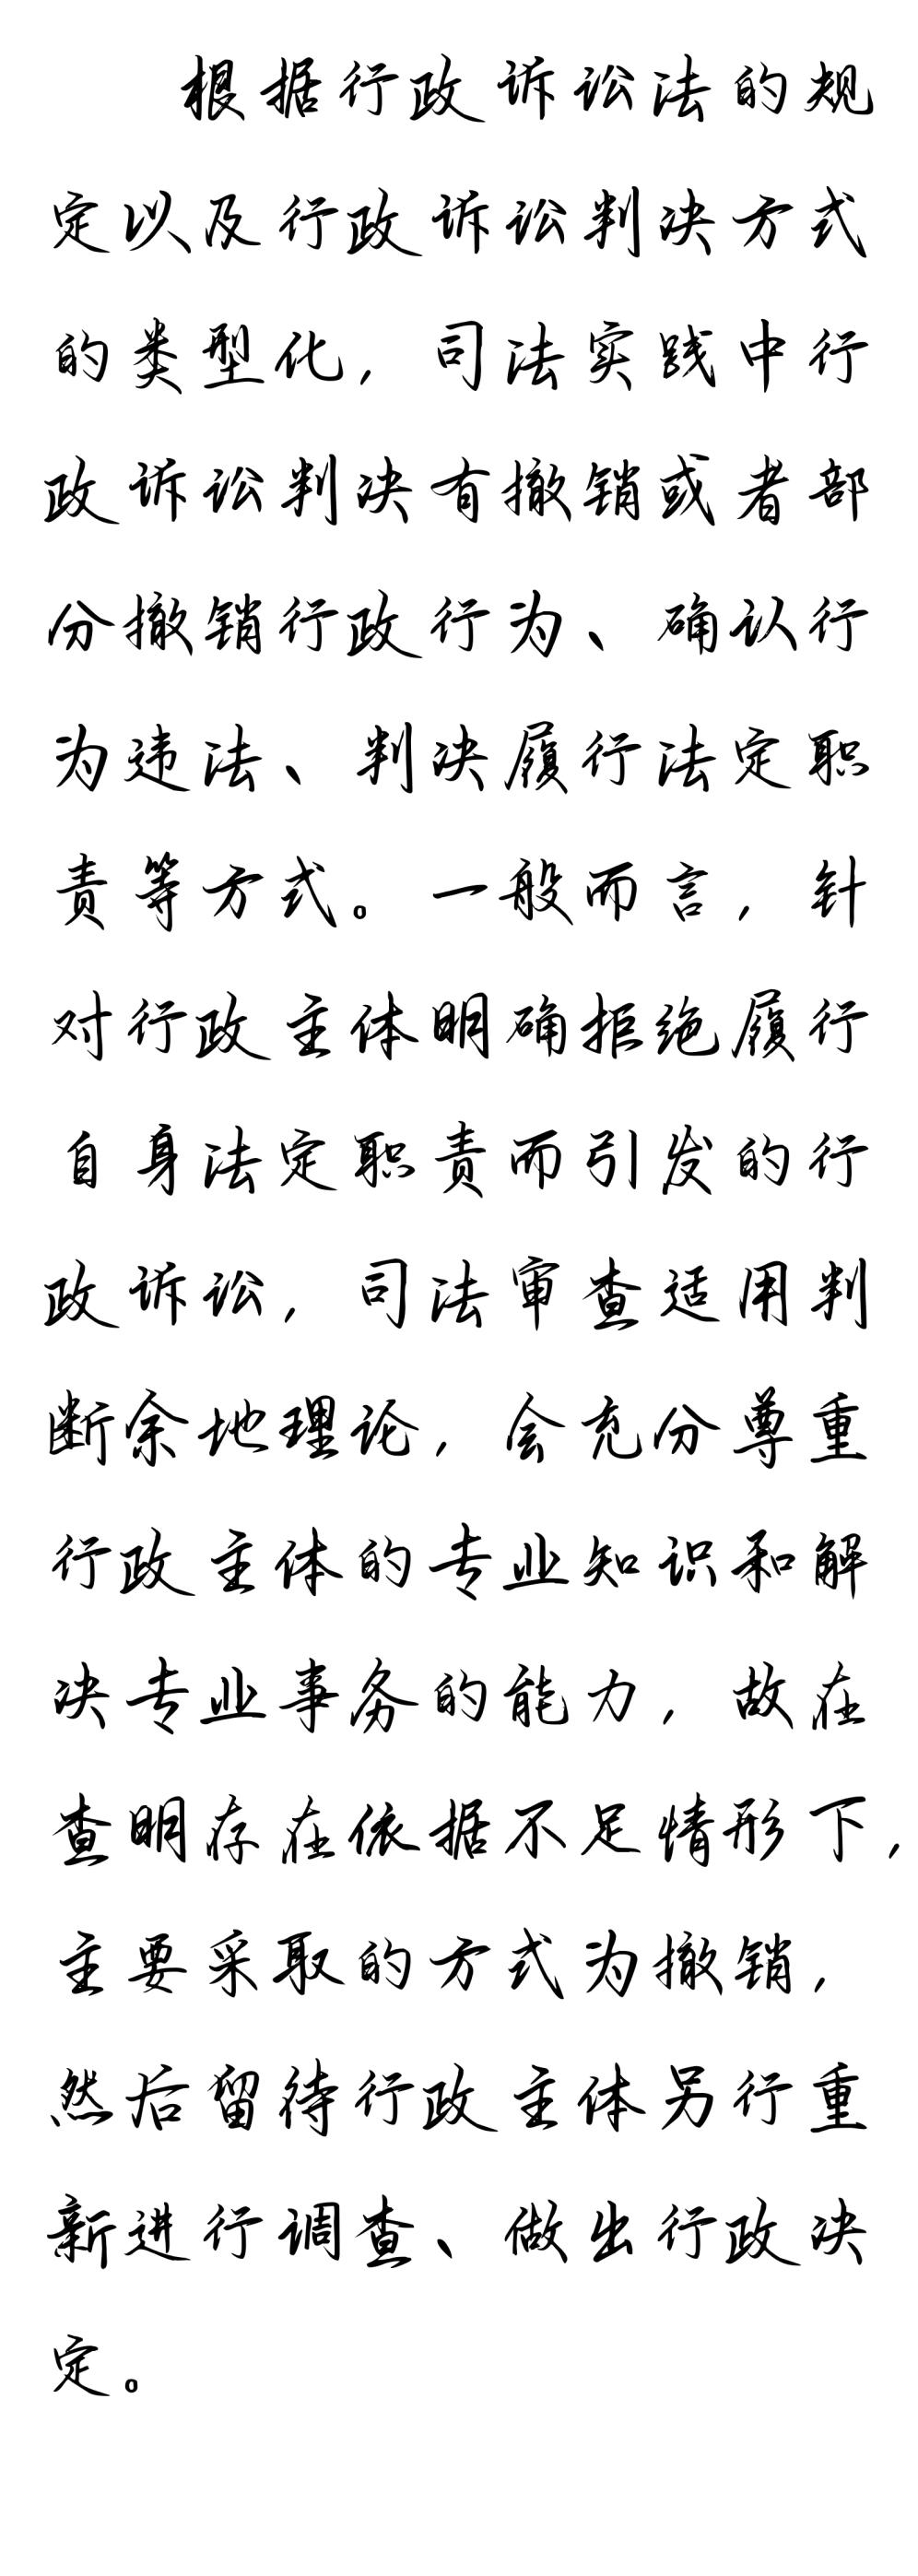 根据行政诉讼法的规
定以及行政诉讼判决方式
的类型化，司法实践中行
政诉讼判决有撤销或者部
分撤销行政行为、确认行
为违法、判决履行法定职
责等方式。一般而言，针
对行政主体明确拒绝履行
自身法定职责而引发的行
政诉讼，司法审查适用判
断余地理论，会充分尊重
行政主体的专业知识和解
决专业事务的能力，故在
查明存在依据不足情形下，
主要采取的方式为撤销，
然后留待行政主体另行重
新进行调查、做出行政决
定。